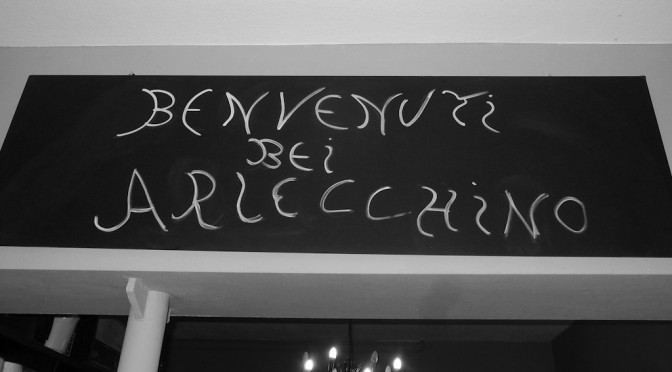 BENVENUTi
BEi
ARLECCHiNO